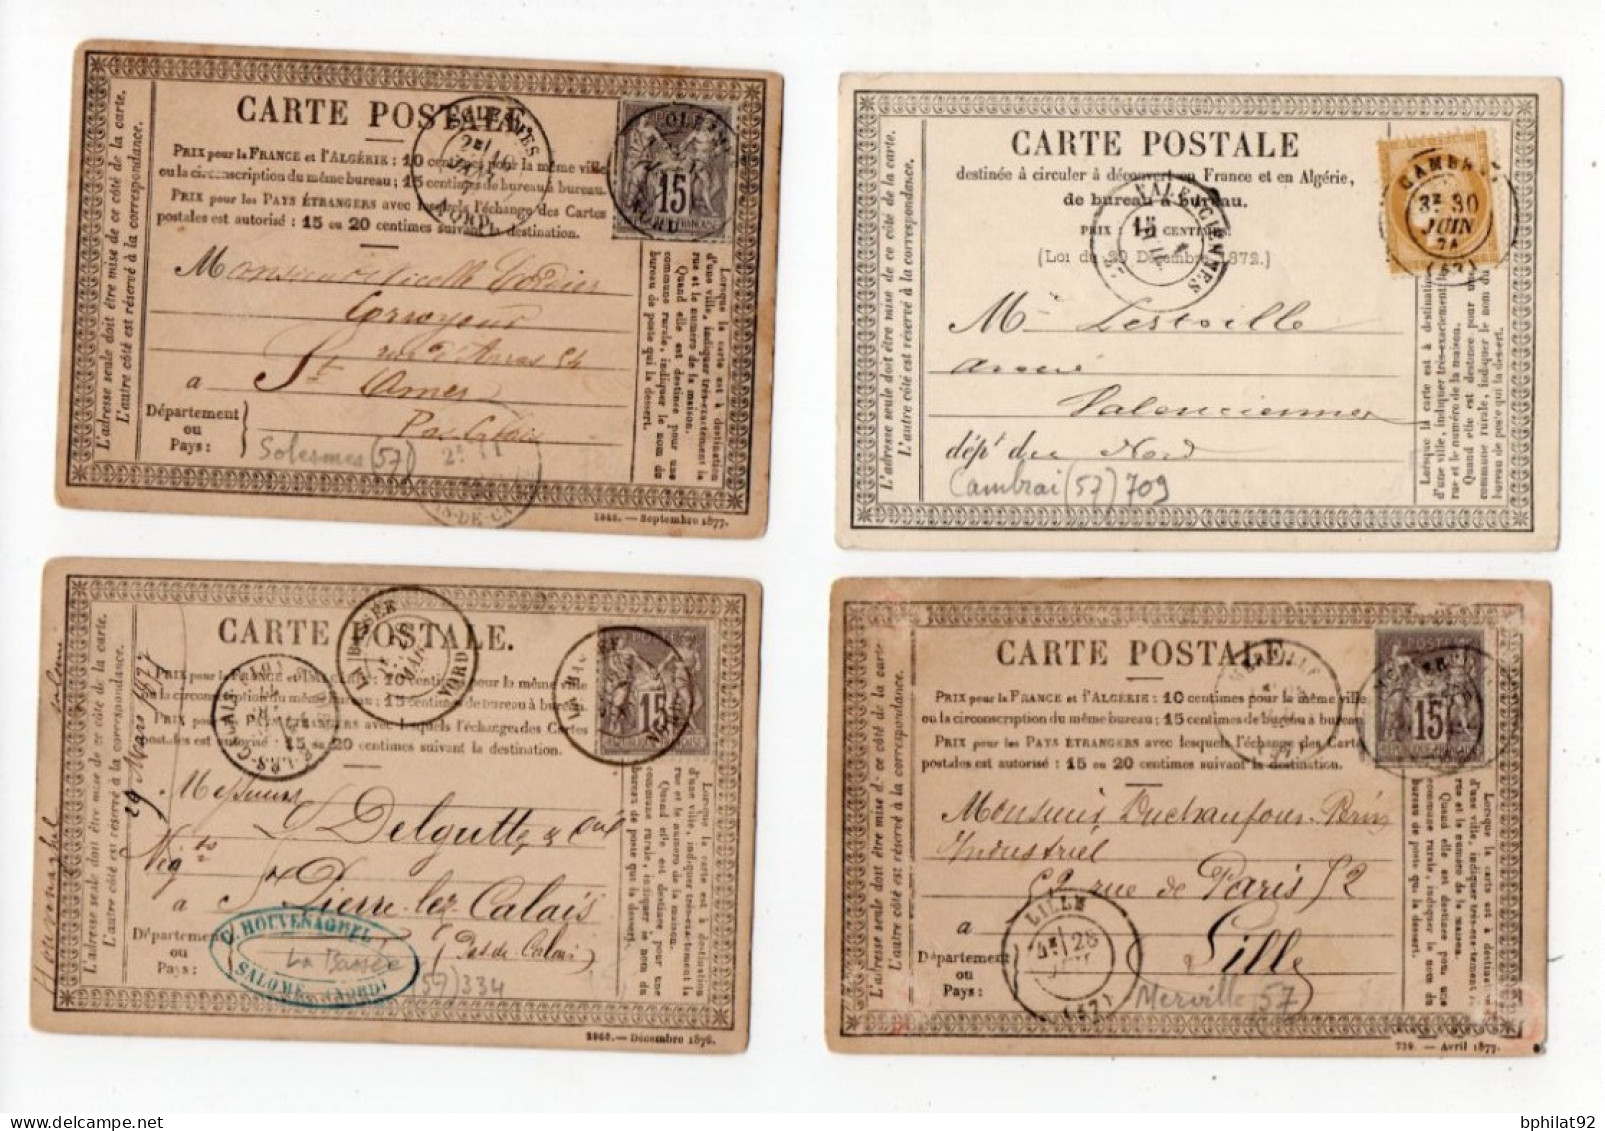 CARTE POSTALE
PRIX pour la FRANCE et l'ALGÉRIE : 10 centimes pour la même ville
ou la circonscription du même bureau ; 15 centimes de bureau à bureau.
PRIX pour les PAYS ÉTRANGERS avec lesquels l'échange des Cartes
postales est autorisé : 15 ou 20 centimes suivant la destination.
L'adresse seule doit être mise de ce côté de la carte.
L'autre côté est réservé à la correspondance.
SOLESMES
NORD
15
Monsieur
rue d'Arras 54
à St Omer
Département
ou
Pays :
Pas Calais
Solesmes (57)
Lorsque la carte est à destination
d'une ville, indiquer très-exactement la
rue et le numéro de la maison.
Quand elle est destinée pour une
commune rurale, indiquer le nom du
bureau de poste qui la dessert.
1846. — Septembre 1877.
CARTE POSTALE
destinée à circuler à découvert en France et en Algérie,
de bureau à bureau.
PRIX : 15 centimes
(Loi du 20 Décembre 1872.)
L'adresse seule doit être mise de ce côté de la carte.
L'autre côté est réservé à la correspondance.
VALENCIENNES
CAMBRAI
3E 30
JUIN
74
(57)
M
Valenciennes
dépt du Nord
Cambrai (57) 709
Lorsque la carte est à destination
d'une ville, indiquer très-exactement la
rue et le numéro de la maison.
Quand elle est destinée pour une
commune rurale, indiquer le nom du
bureau de poste qui la dessert.
CARTE POSTALE.
PRIX pour la FRANCE et l'ALGÉRIE : 10 centimes pour la même ville
ou la circonscription du même bureau ; 15 centimes de bureau à bureau.
PRIX pour les PAYS ÉTRANGERS avec lesquels l'échange des Cartes
postales est autorisé : 15 ou 20 centimes suivant la destination.
L'adresse seule doit être mise de ce côté de la carte.
L'autre côté est réservé à la correspondance.
29 Mars 1877
LA BASSÉE
NORD
15
Messieurs
Delgutte &
Négts
à St Pierre-lez-Calais
Département
ou
Pays :
(Pas-de-Calais)
C. HOUVENAGHEL
SALOMÉ (NORD)
La Bassée
(57) 334
Lorsque la carte est à destination
d'une ville, indiquer très-exactement la
rue et le numéro de la maison.
Quand elle est destinée pour une
commune rurale, indiquer le nom du
bureau de poste qui la dessert.
Décembre 1876.
CARTE POSTALE.
PRIX pour la FRANCE et l'ALGÉRIE : 10 centimes pour la même ville
ou la circonscription du même bureau ; 15 centimes de bureau à bureau
PRIX pour les PAYS ÉTRANGERS avec lesquels l'échange des Cartes
postales est autorisé : 15 ou 20 centimes suivant la destination.
L'adresse seule doit être mise de ce côté de la carte
L'autre côté est réservé à la correspondance.
MERVILLE
15
Monsieur Duchaufour-Périn
Industriel
rue de Paris 52
à Lille
LILLE
28
Département
ou
Pays :
Merville (57)
Lorsque la carte est à destination
d'une ville, indiquer très-exactement la
rue et le numéro de la maison.
Quand elle est destinée pour une
commune rurale, indiquer le nom du
bureau de poste qui la dessert.
Avril 1877.
bphilat92